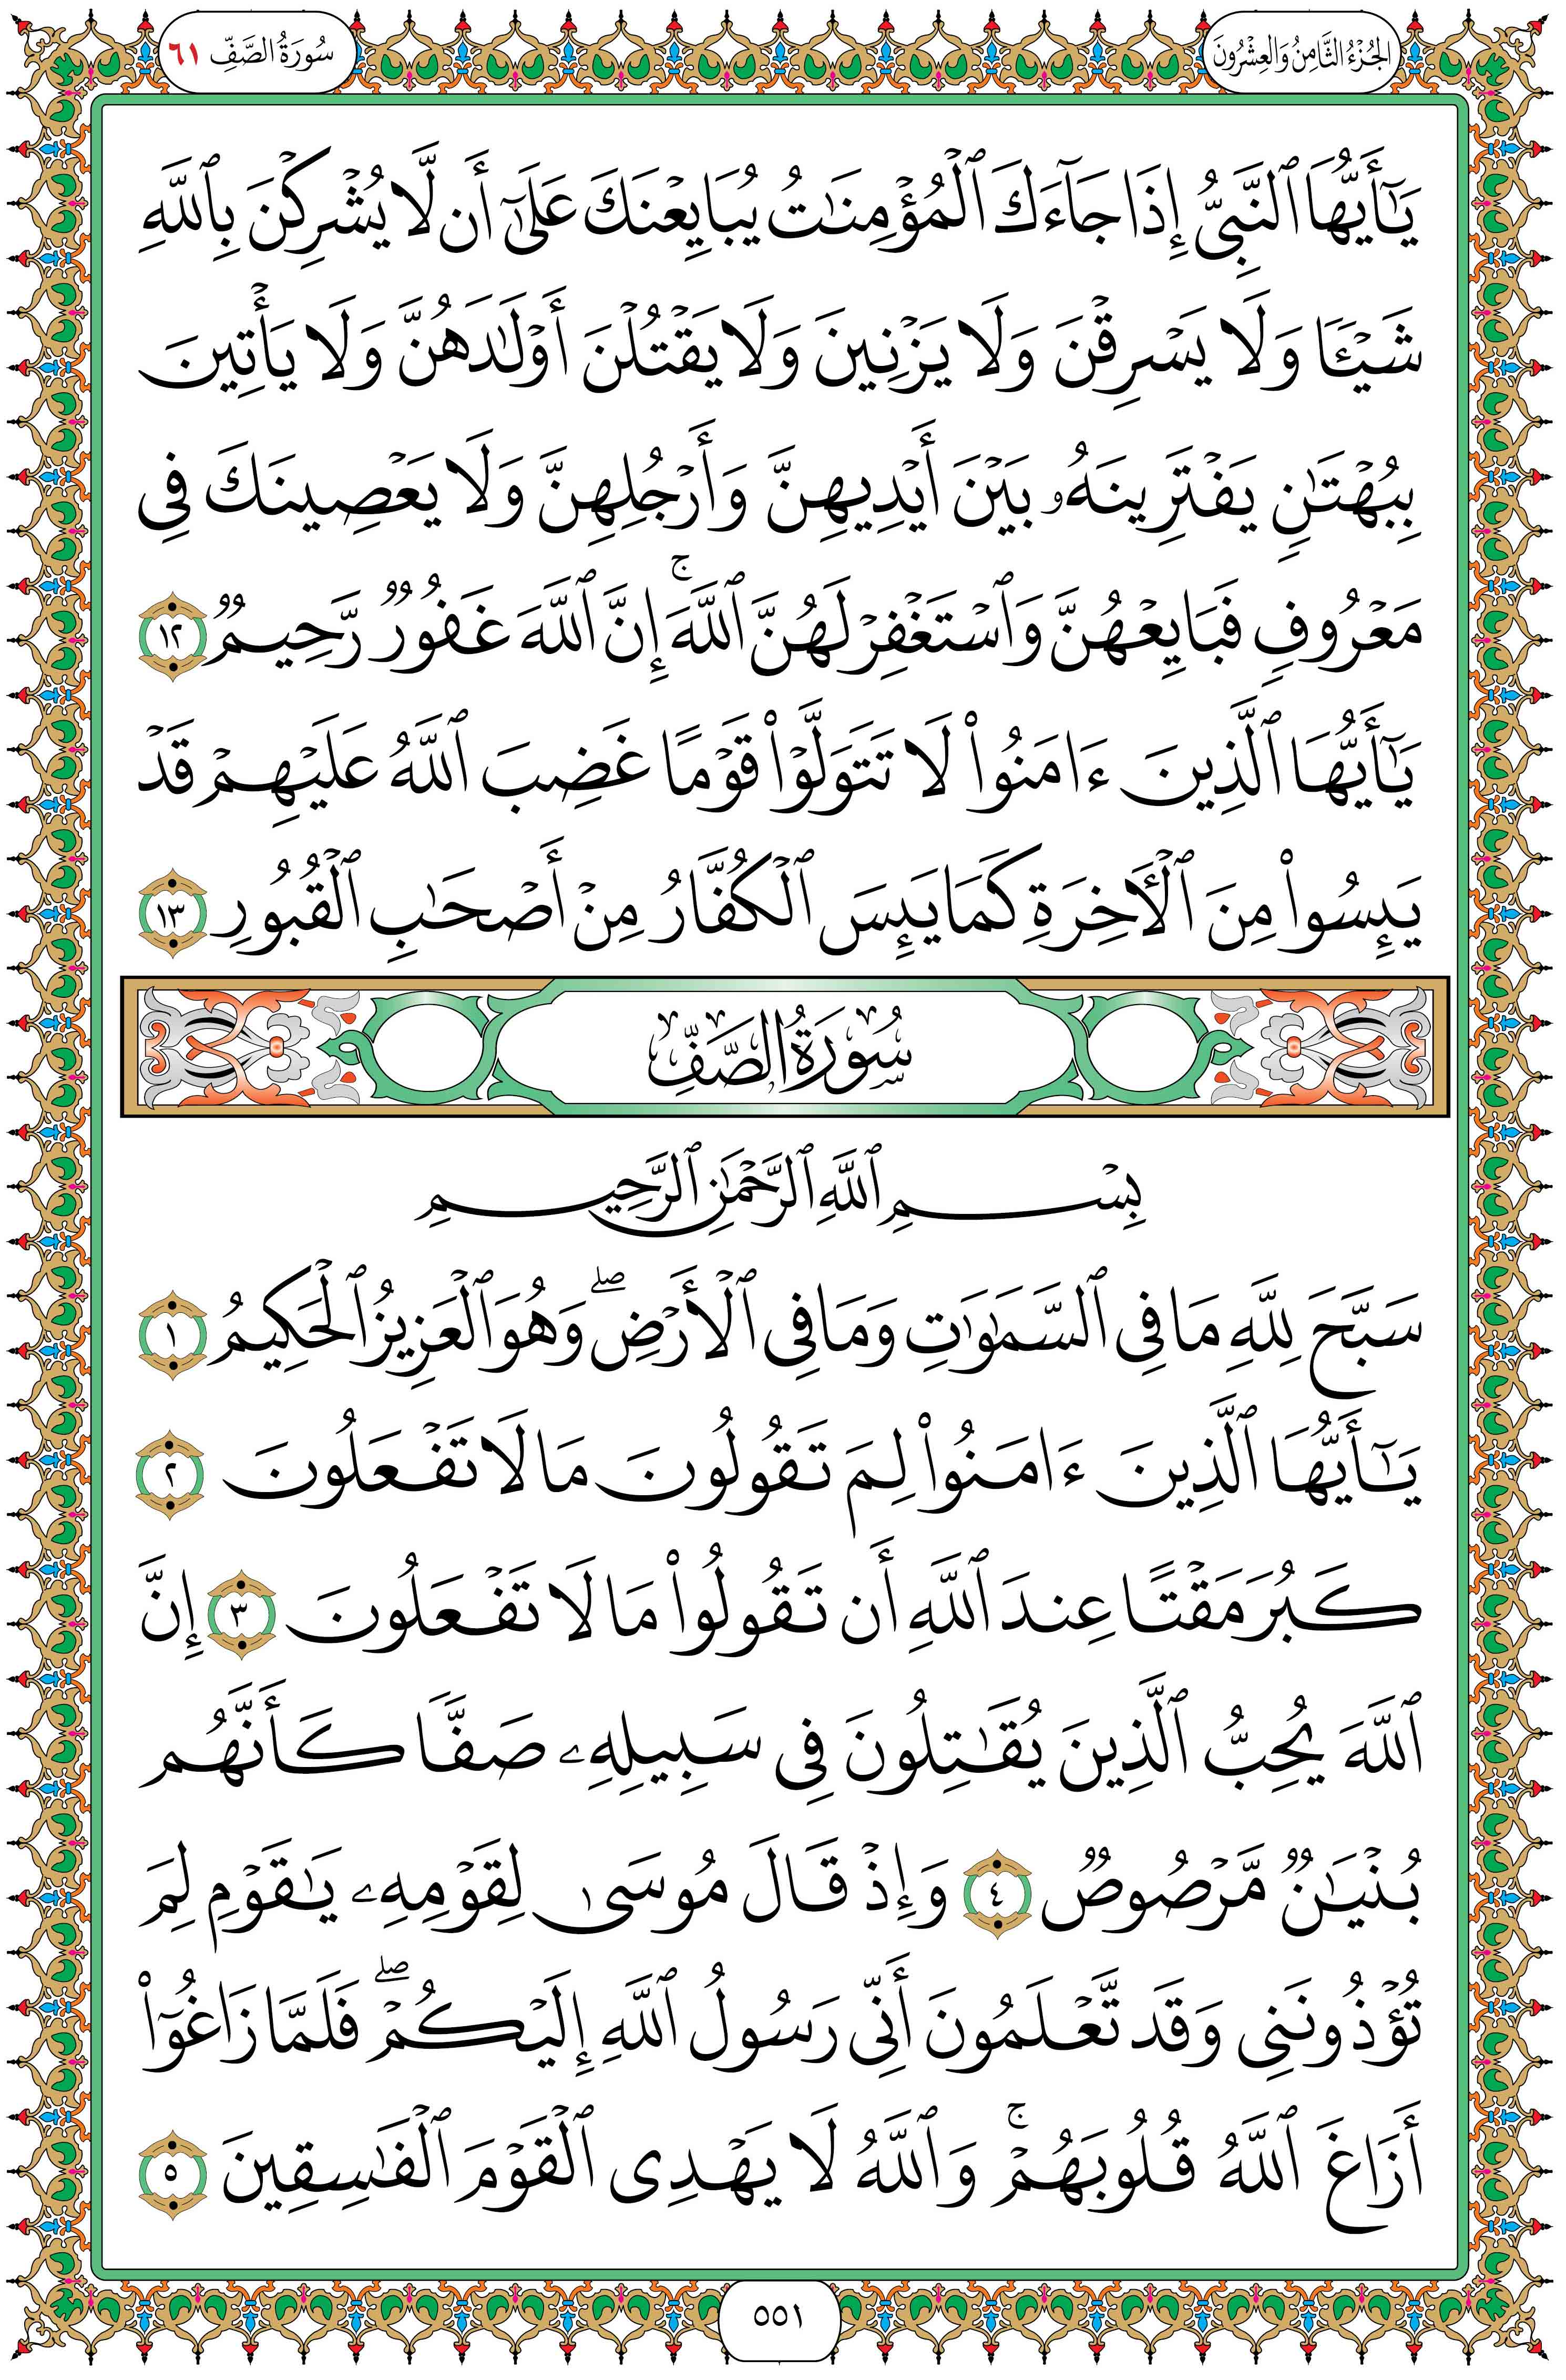 الجُزْءُ الثَّامِنُ وَالعِشْرُونَ
سُورَةُ الصَّفِّ ٦١
يَٰٓأَيُّهَا ٱلنَّبِيُّ إِذَا جَآءَكَ ٱلْمُؤْمِنَٰتُ يُبَايِعْنَكَ عَلَىٰٓ أَن لَّا يُشْرِكْنَ بِٱللَّهِ
شَيْـًٔا وَلَا يَسْرِقْنَ وَلَا يَزْنِينَ وَلَا يَقْتُلْنَ أَوْلَٰدَهُنَّ وَلَا يَأْتِينَ
بِبُهْتَٰنٍ يَفْتَرِينَهُۥ بَيْنَ أَيْدِيهِنَّ وَأَرْجُلِهِنَّ وَلَا يَعْصِينَكَ فِى
مَعْرُوفٍ فَبَايِعْهُنَّ وَٱسْتَغْفِرْ لَهُنَّ ٱللَّهَ ۚ إِنَّ ٱللَّهَ غَفُورٌ رَّحِيمٌ ١٢
يَٰٓأَيُّهَا ٱلَّذِينَ ءَامَنُوا۟ لَا تَتَوَلَّوْا۟ قَوْمًا غَضِبَ ٱللَّهُ عَلَيْهِمْ قَدْ
يَئِسُوا۟ مِنَ ٱلْـَٔاخِرَةِ كَمَا يَئِسَ ٱلْكُفَّارُ مِنْ أَصْحَٰبِ ٱلْقُبُورِ ١٣
سُورَةُ الصَّفِّ
بِسْمِ ٱللَّهِ ٱلرَّحْمَٰنِ ٱلرَّحِيمِ
سَبَّحَ لِلَّهِ مَا فِى ٱلسَّمَٰوَٰتِ وَمَا فِى ٱلْأَرْضِ ۖ وَهُوَ ٱلْعَزِيزُ ٱلْحَكِيمُ ١
يَٰٓأَيُّهَا ٱلَّذِينَ ءَامَنُوا۟ لِمَ تَقُولُونَ مَا لَا تَفْعَلُونَ ٢
كَبُرَ مَقْتًا عِندَ ٱللَّهِ أَن تَقُولُوا۟ مَا لَا تَفْعَلُونَ ٣ إِنَّ
ٱللَّهَ يُحِبُّ ٱلَّذِينَ يُقَٰتِلُونَ فِى سَبِيلِهِۦ صَفًّا كَأَنَّهُم
بُنْيَٰنٌ مَّرْصُوصٌ ٤ وَإِذْ قَالَ مُوسَىٰ لِقَوْمِهِۦ يَٰقَوْمِ لِمَ
تُؤْذُونَنِى وَقَد تَّعْلَمُونَ أَنِّى رَسُولُ ٱللَّهِ إِلَيْكُمْ ۖ فَلَمَّا زَاغُوٓا۟
أَزَاغَ ٱللَّهُ قُلُوبَهُمْ ۚ وَٱللَّهُ لَا يَهْدِى ٱلْقَوْمَ ٱلْفَٰسِقِينَ ٥
٥٥١